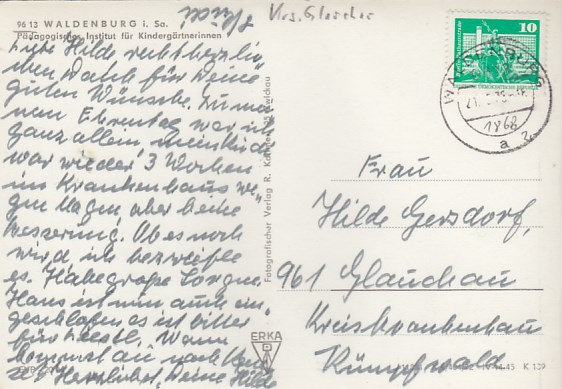 96 13 WALDENBURG i. Sa.
Pädagogisches Institut für Kindergärtnerinnen
Liebe Hilde recht herzli
chen Dank für Deine
guten Wünsche. Zu mei
nem Ehrentag war ich
ganz allein
war wieder 3 Wochen
im Krankenhaus we
gen Magen aber keine
Besserung. Ob es noch
wird, ich bezweifle
es. Habe große Sorgen.
Hans ist nun auch ein
geschlafen es ist bitter
für Liesel. Wann
kommst du nach
Herzlichst, Deine Hilde
Krs. Glauchau
Fotografischer Verlag R. Zwickau
ERKA
10
DEUTSCHE
1868
a
Frau
Hilde Gersdorf,
961 Glauchau
Kreiskrankenhau
Rümpfwald
K 129